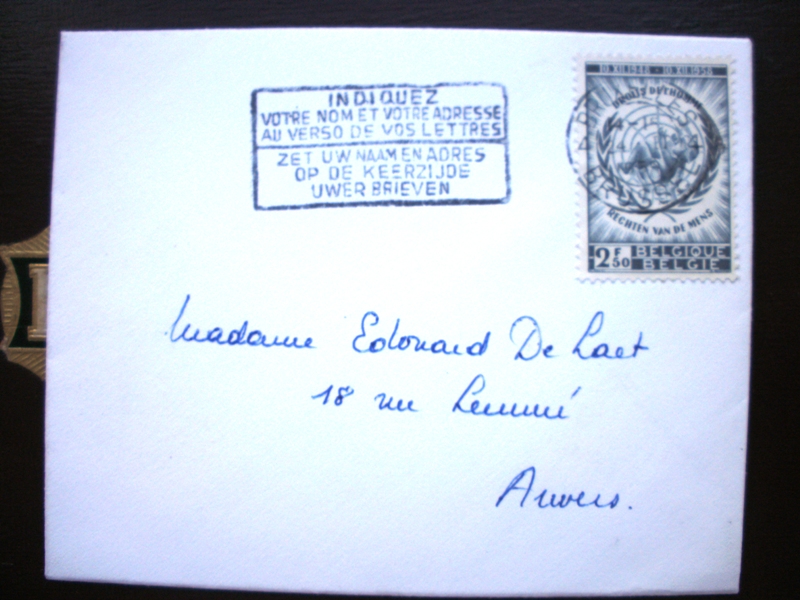 INDIQUEZ
VOTRE NOM ET VOTRE ADRESSE
AU VERSO DE VOS LETTRES
ZET UW NAAM EN ADRES
OP DE KEERZIJDE
UWER BRIEVEN
10.XII.1948 - 10.XII.1958
DROITS DE L'HOMME
RECHTEN VAN DE MENS
2F50 BELGIQUE
BELGIE
Madame Edouard De Laet
18 rue
Anvers.